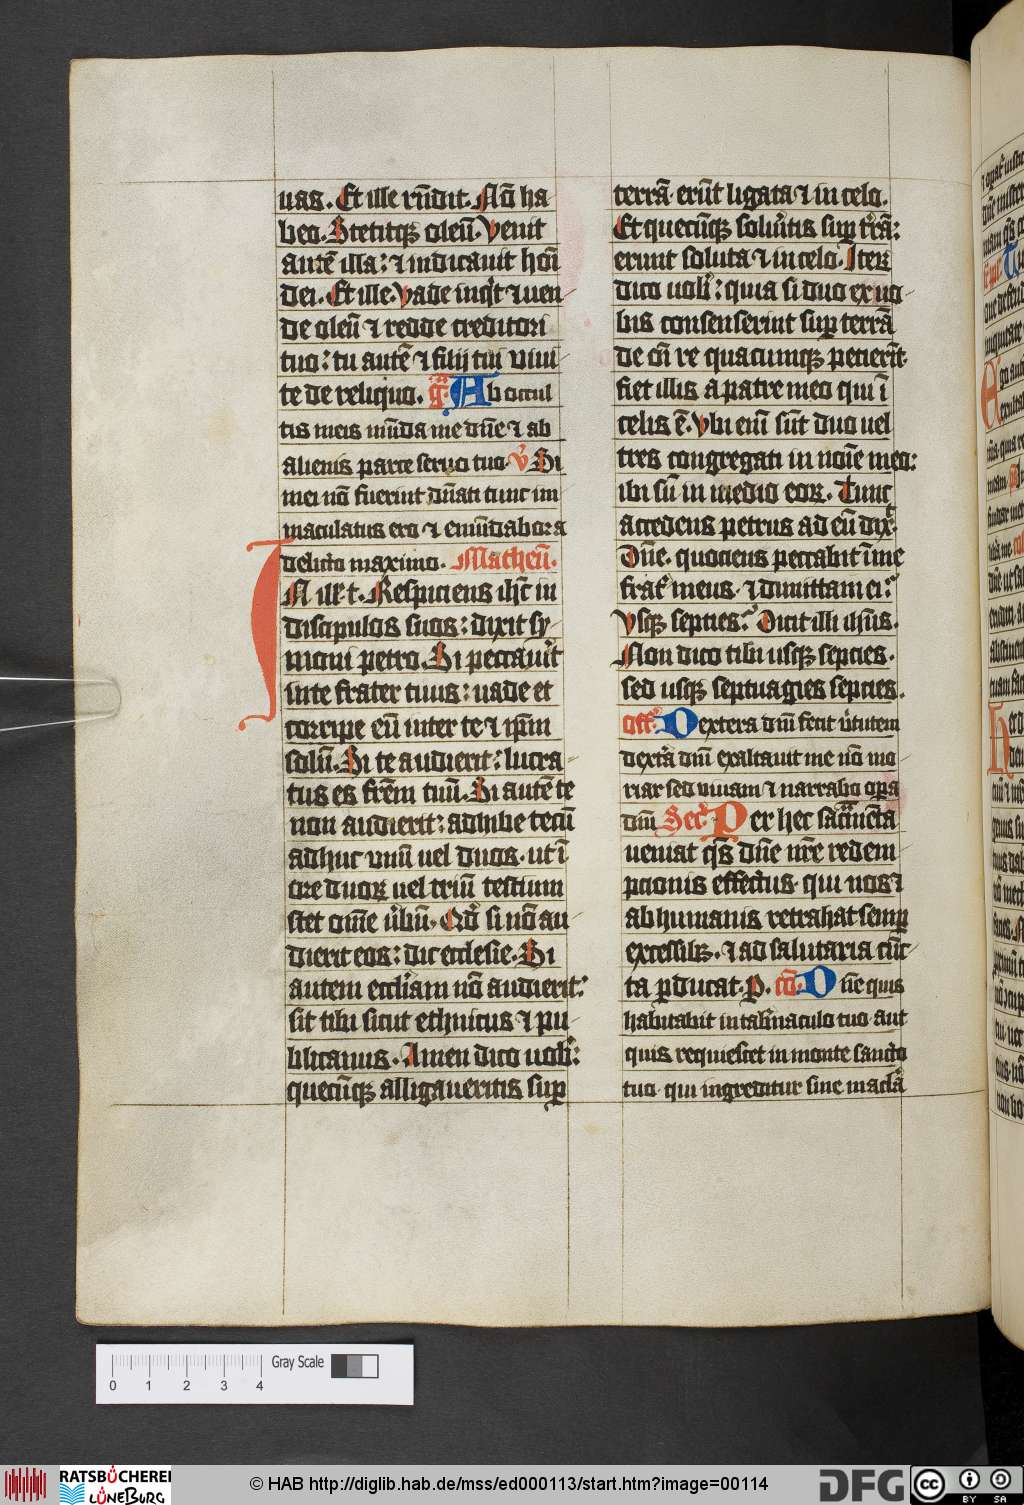 uas. Et ille rñdit. Nõ ha
beo. Stetitqꝫ oleũ. Venit
autẽ illa: ⁊ indicauit hoĩ
dei. Et ille. Vade inqͥt ⁊ uen
de oleũ ⁊ redde creditori
tuo: tu autẽ ⁊ filij tui viui
te de reliquo. gͣ. Ab occul
tis meis mũda me dñe ⁊ ab
alienis parce seruo tuo. v̾ Si
mei nõ fuerint dñati tunc im
maculatus ero ⁊ emũdabor a
delicto maximo. Matheũ.
IN ill. t. Respiciens ihc̄ in
discipulos suos: dixit sy
moni petro. Si peccau̾it
in te frater tuus: uade et
corripe eũ inter te ⁊ ip̄m
solũ. Si te audierit: lucra
tus es fr̄em tuũ. Si autẽ te
non audierit: adhibe tecũ
adhuc vnũ uel duos. ut ĩ
ore duoꝝ uel triũ testium
stet om̄e u̾bũ. Qd̾ si nõ au
dierit eos: dic ecclesie. Si
autem eccl̄iam nõ audierit:
sit tibi sicut ethnicus ⁊ pu
blicanus. Amen dico uob̾:
quecũqꝫ alligaueritis suꝑ
terrã. erũt ligata ⁊ in celo.
Et quecũqꝫ solu̾itis suꝑ t̾rã:
erunt soluta ⁊ in celo. Iteꝝ
dico uob̾: quia si duo ex uo
bis consenserint suꝑ terrã
de oĩ re quacumqꝫ petierĩt.
fiet illis a patre meo qui ĩ
celis ẽ. Vbi eni᷒ sũt duo uel
tres congregati in noĩe meo:
ibi sũ in medio eoꝝ. Tunc
accedens petrus ad eũ dix̾.
Dñe. quociens peccabit ĩ me
frat̾ meus. ⁊ dimittam ei.
Vsqꝫ septies. Dicit illi ihũs.
Non dico tibi usqꝫ septies.
sed usqꝫ septuagies septies.
off̾. Dextera dñi fecit u̾tutem
dext̾a dñi exaltauit me nõ mo
riar sed viuam ⁊ narrabo oꝑa
dñi Secͬ. Per hec sac̃mẽta
ueniat qs̄ dñe nr̄e redem
pcionis effectus. qui nos ⁊
ab humanis retrahat semꝑ
excessibꝫ. ⁊ ad salutaria cũc
ta ꝑducat. P. cõ. Dñe quis
habitabit in tab̾naculo tuo. aut
quis requiescet in monte sancto
tuo. qui ingreditur sine macl̾a
Gray Scale
0 1 2 3 4
RATSBÜCHEREI
LÜNEBURG
© HAB http://diglib.hab.de/mss/ed000113/start.htm?image=00114
DFG
cc BY SA